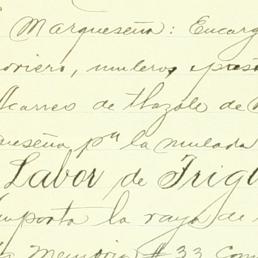 Marqueseña: Encarg
oviero, muleros y pas
Acarreo de tlazole de
queseña pª la mulada
Labor de Trig
Importa la raya de
Memoria #33 Com